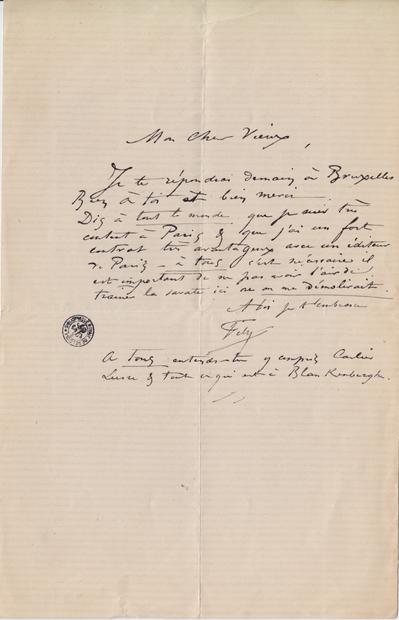 Mon Cher Vieux,
Je te répondrai demain à Bruxelles
Bien à toi et bien merci
Dis à tout le monde que je suis très
content à Paris & que j'ai un fort
contrat très avantageux avec un éditeur
de Paris – à tous c'est nécessaire il
est important de ne pas avoir l'air de
traîner la savate ici ou on me démolirait.
A toi je t'embrasse
Fély
A Tous entends-tu y compris Carlier
& tout ce qui est à Blankenberghe.